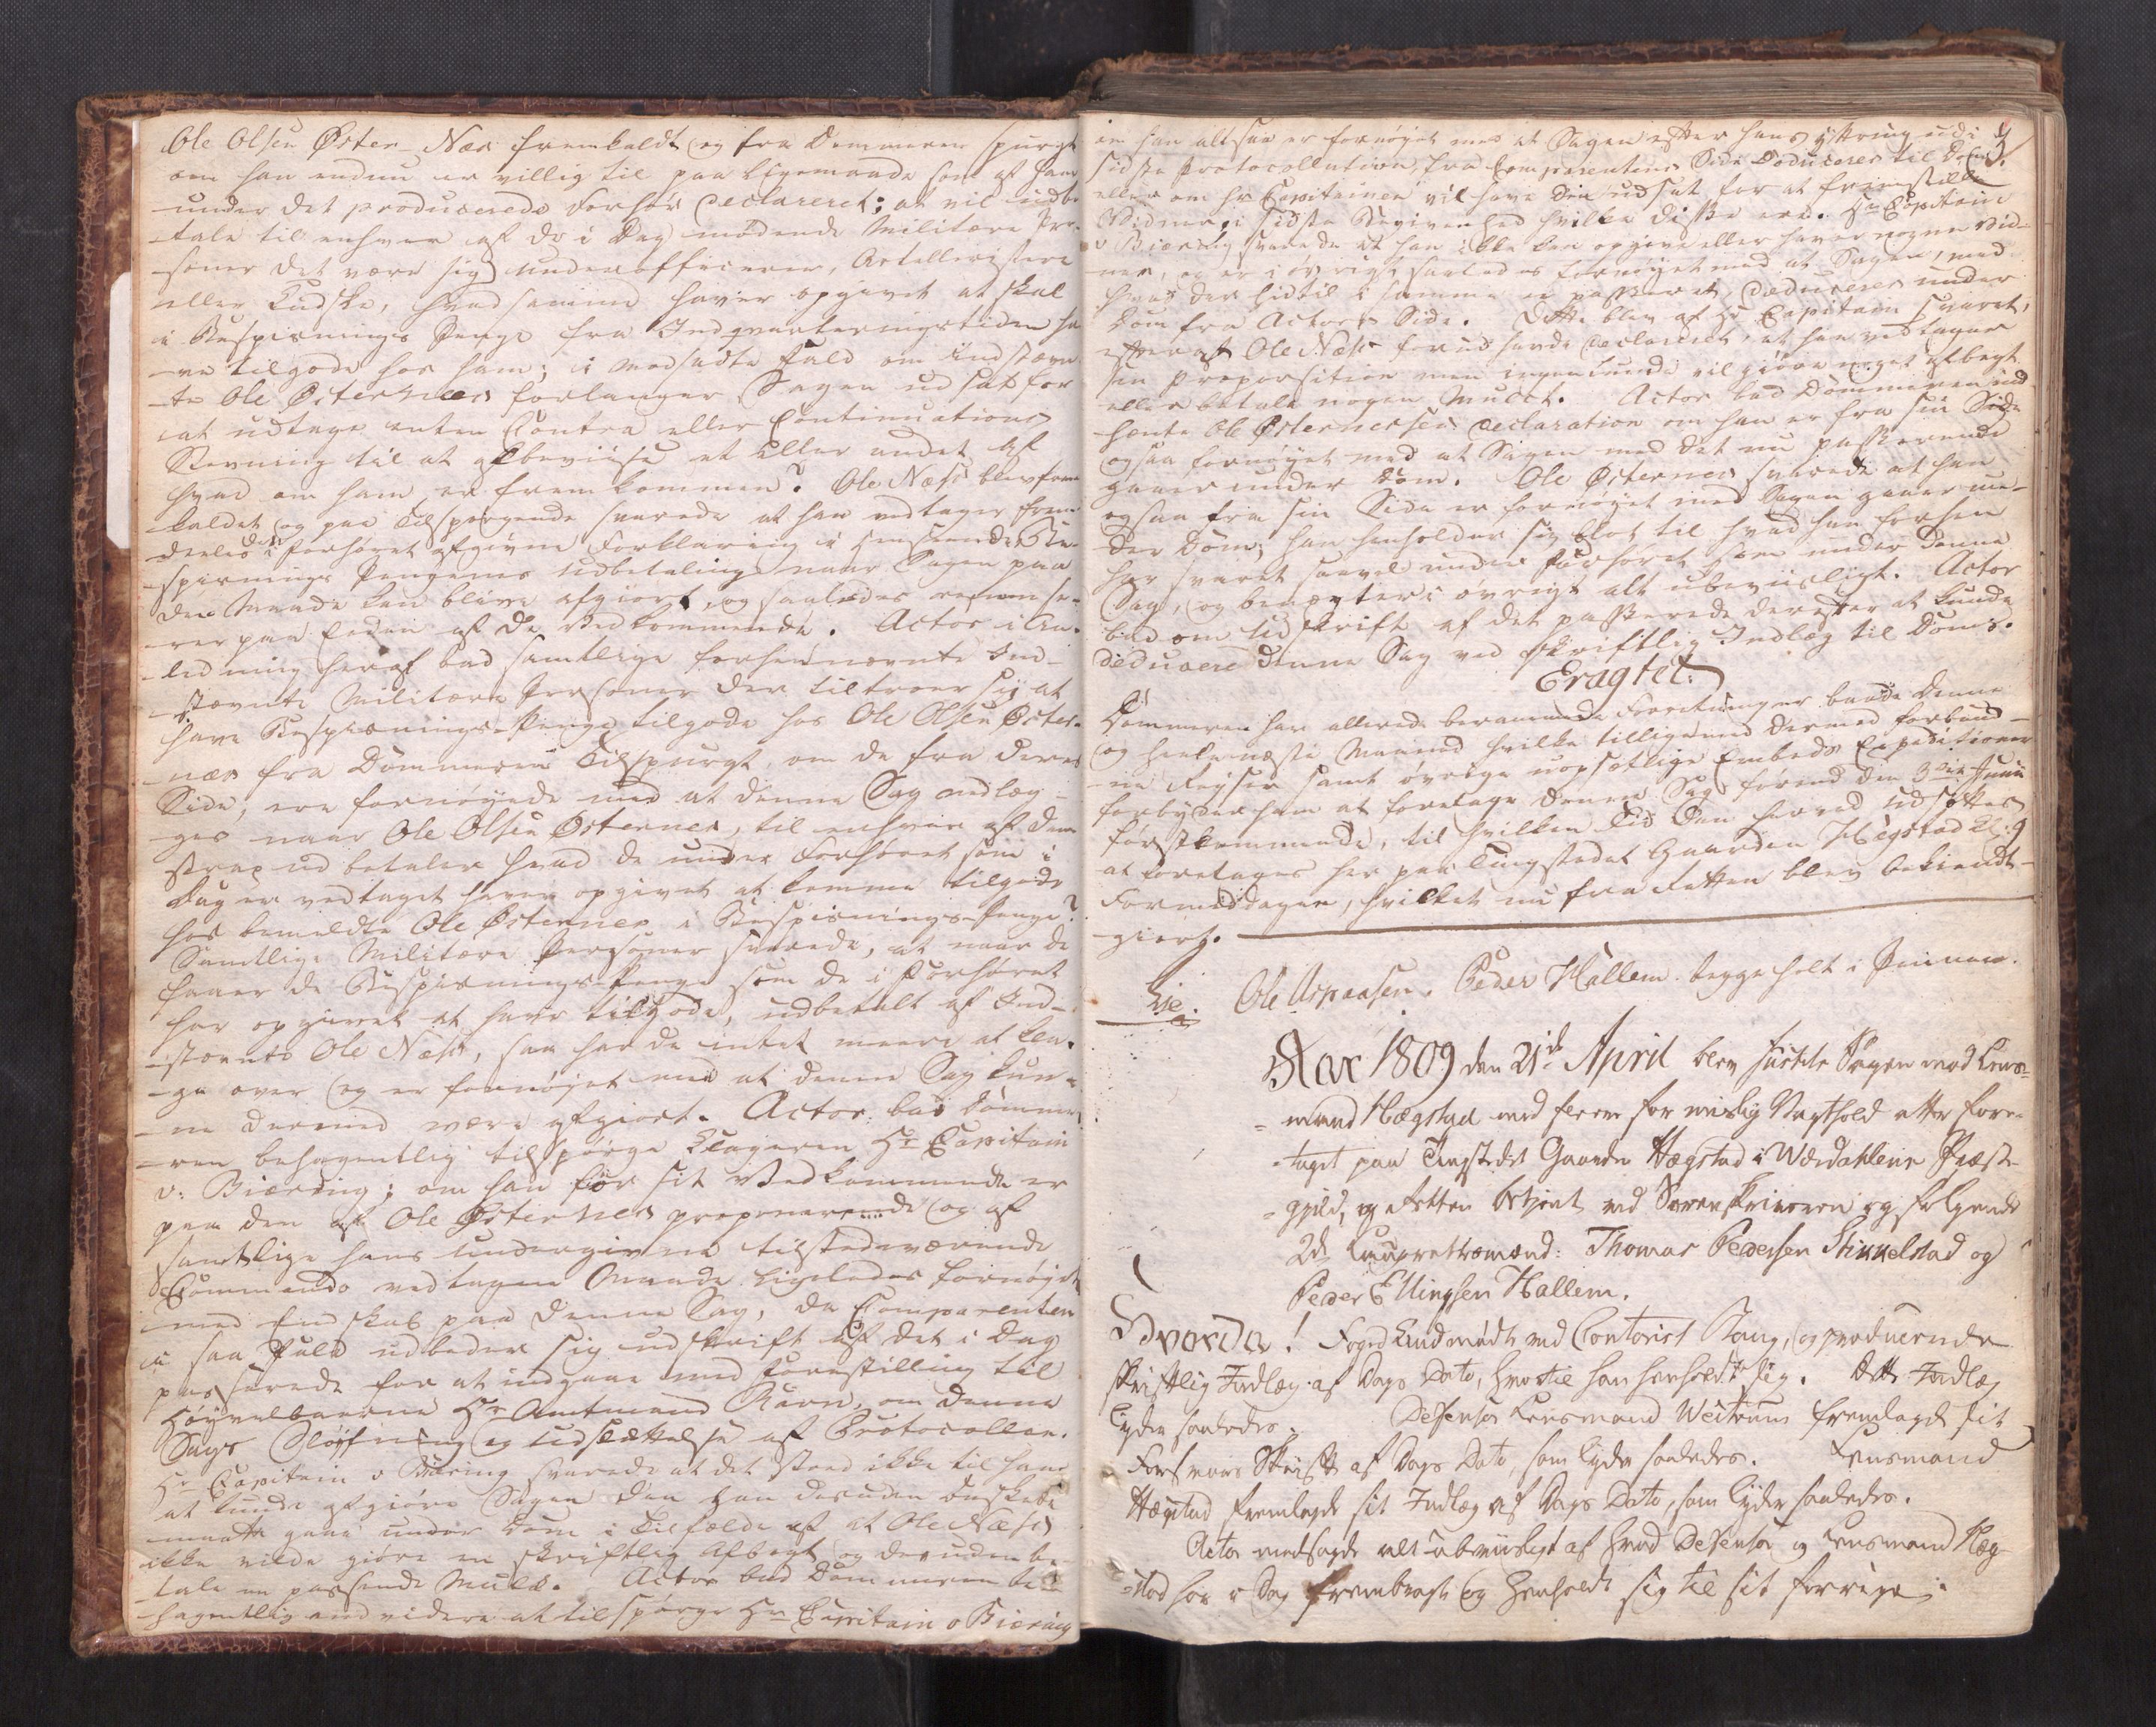 Ole Olsen Øster-Næs fremkaldt og fra Dommeren spurgt
om han endnu er villig til paa liigemaade som af ham
under det producerede Forhør declareret; at vil udbe-
-tale til enhver af de i Dag mødende Militære Per-
-soner det være sig Underofficerer, Artellerister
eller Kudske, hvad samme haver opgivet at skal
i Bespisnings Penge fra Indqvarteringstiden ha-
-ve tilgode hos ham; i modsatte Fald om Indstævn-
-te Ole Østernæs forlanger Sagen udsat for
at udtage enten Contra eller Continuations
Stevning til at afbeviise et eller andet af
hvad om ham er fremkommen? Ole Næss blev frem-
kaldet og paa Tilspørgende svarede at han vedtager frem-
deeles i Forhøret afgivne Forklaring i Henseende Be-
-spisnings Pengenes Udbetaling naar Sagen paa
den Maade kan blive afgiort, og saaledes
paa Eeden af de Vedkommende. Actor i An-
-ledning heraf bad samtlige forhen nævnte Ind-
-stævnte Militære Personer der tiltroer sig at
have Bespisnings-Penge tilgode hos Ole Olsen Øster-
-næs fra Dommeren Tilspurgt, om de fra deres
Side, ere fornøyede med at denne Sag nedlæg-
-ges naar Ole Olsen Østernes, til enhver af dem
strax udbetaler hvad de under Forhøret som i
Dag er vedtaget haver opgivet at komme tilgode
hos bemeldte Ole Østernes i Bespisnings-Penge?
Samtlige Militære Personer svarede, at naar de
faaer de Bespisnings-Penge som de i Forhøret
har opgivet at have tilgode, udbetalt af Ind-
-stævnte Ole Næss, saa har de intet meere at kla-
-ge over og er fornøjet med at denne Sag kun-
-ne dermed være afgiort. Actor bad Domme-
-ren behagentlig tilspørge Klageren Hr Capitain
v: Biering; om han for sit Vedkommende er
paa den af Ole Østernes proponerende og af
samtlige hans undergivne tilstedeværende
Commando vedtagen Maade ligeledes fornøjet
med Endskab paa denne Sag, da Comparenten
i saa Fald udbeder sig Udskrift af det i Dag
passerede for at indgaae med Forestilling til
Høyvelbaarne Hr Amtmand Ravn, om denne
Sags Sløifning og Udslættelse af Protocollen.
Hr Capitain v Biering svarede at det stod ikke til ham
at kunde afgiøre Sagen den han desuden ønskede
maatte gaae under Dom i Tilfælde af at Ole Næss
ikke vilde giøre en skriftlig Afbegt og desuden be-
tale en passende Mulct. Actor bad Dommeren be-
hagentlig end videre at tilspørge Hr Capitain v Biering
3
om han altsaa er fornøjet med at Sagen efter hans Yttring udi
sidste Protocollation, fra Comparentens Side Deduceres til Dom
eller om Hr Capitainen vil have den udsat for at fremstille
Vidner, i sidste Begivenhed hvilke disse ere. Hr Capitain
v Biering svarede at han ikke kan opgive eller haver nogen Vid-
ner, og er i øvrigt saaledes fornøyet med at Sagen, med
hvad der hidtil i samme er passeret, deduceres under
Dom fra Actors Side. Dette blev af Hr Capitain svaret,
efter at Ole Næss forud havde declareret, at han vedtager
sin Preporsition men ingenlunde vil giøre noget Afbegt
eller betale nogen Mulct. Actor bad Dommeren ind-
hente Ole Østernessens Declaration om han er fra sin Side
ogsaa fornøyet med at Sagen med det nu passerende
gaaer under Dom. Ole Østernes svarede at han
ogsaa fra sin Side er fornøyet med Sagen gaaer un-
der Dom, han henholder sig blot til hvad han forhen
har svaret saavel under Forhøret som under denne
Sag, og benægter i øvrigt alt ubeviisligt. Actor
bad om Udskrift af det passerede derefter at kunde
deducere denne Sag ved skriftlig Indlæg til Doms.
Eragtet:
Dommeren har allerede berammede Forretninger baade denne
og heele næste Maaned hvilke tilligemed dermed forbund-
-ne Reyser samt øvrige uopsætlige Embeds Expeditioner
forbyder ham at foretage denne Sag førend den 3die Junii
førstkommende, til hvilken Tid den herved udsættes
at foretages her paa Tingstedet Gaarden Hegstad Kl: 9
Formiddagen, hvilket nu fra Retten blev bekiendt-
giort.
Lie. Ole Aspaasen. Peder Hallem begge holt i Pennen.
Aar 1809 den 21de April blev Justits Sagen mod Lens-
-mand Hægstad med fleere for mislig Vagthold atter fore-
-taget paa Tingstedet Gaarden Hægstad i Wærdahlens Præste-
-gjeld, og Retten betjent ved Sorenskriveren og følgende
2de Laugrettesmænd: Thomas Pedersen Stikkelstad og
Peder Ellingsen Hallem.
Hvorda! Foged Lund mødte ved Contorist Stang, og producerede
skriftlig Indlæg af Dags Dato, hvortil han henholdt sig. Dette Indlæg
lyder saaledes. Defensor Lensmand Westrum fremlagde sit
Forsvars Skrift af Dags Dato, som lyder saaledes. Lensmand
Hægstad fremlagde sit Indlæg af Dags Dato, som lyder saaledes.
Actor modsagde alt ubeviisligt af hvad Defensor og Lensmand Hæg-
-stad har i Dag frembragt og henholdt sig til sit forrige.